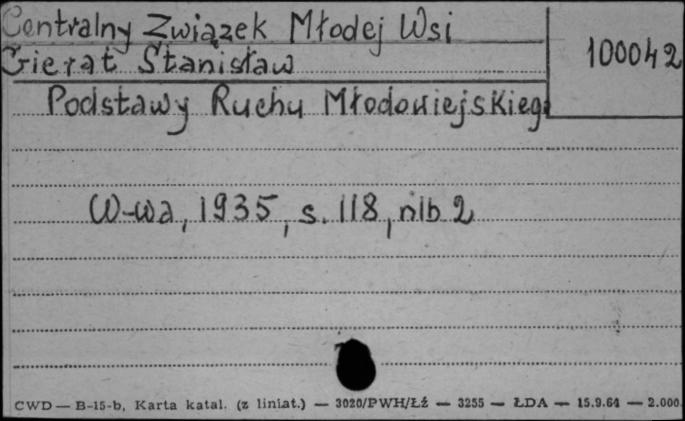 Centralny Związek Młodej Wsi
100042
Gierat Stanisław
Podstawy Ruchu Młodowiejskieg
W-wa, 1935, s. 118, nlb 2
CWD — B-15-b, Karta katal. (z liniat.) — 3020/PWH/Łź — 3255 — ŁDA — 15.9.64 — 2.000.